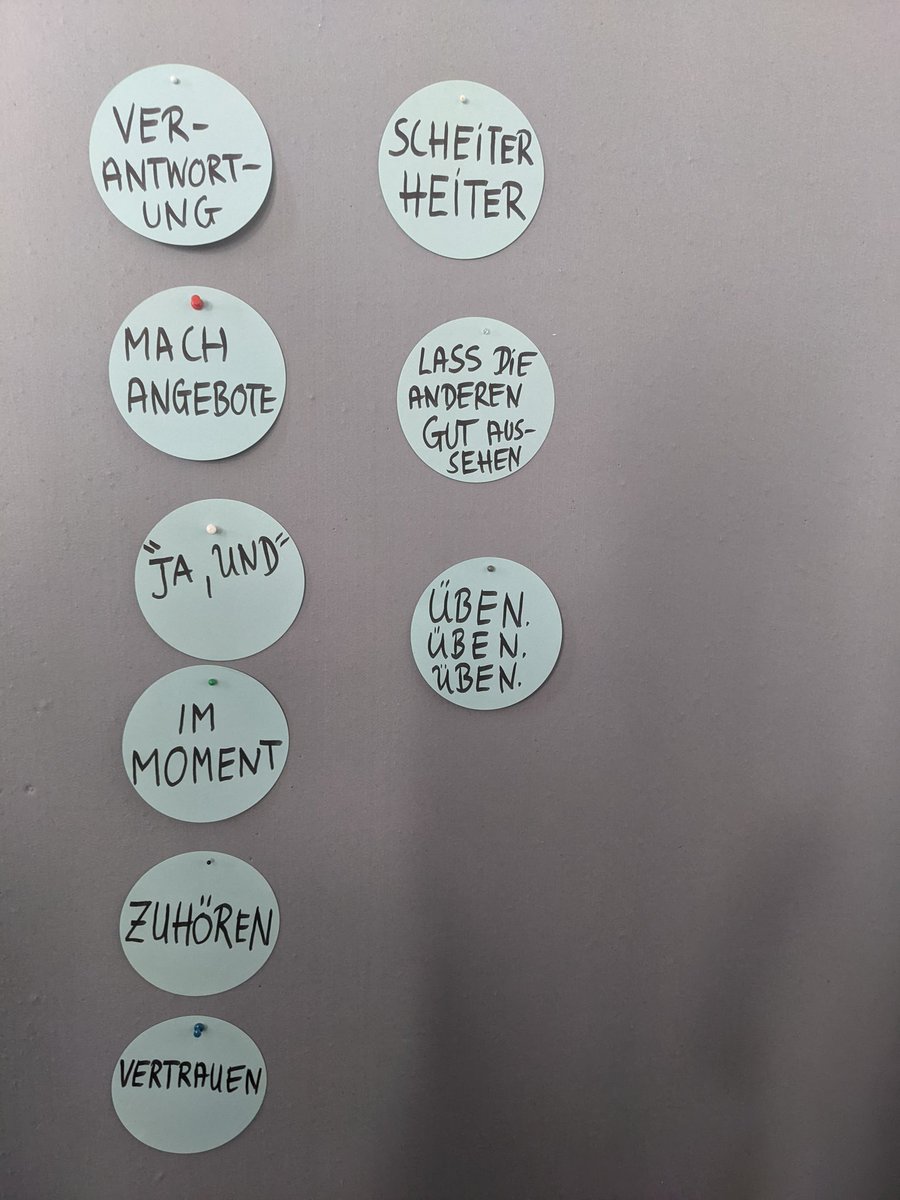 VER-
ANTWORT-
UNG
MACH
ANGEBOTE
"JA, UND"
IM
MOMENT
ZUHÖREN
VERTRAUEN
SCHEITER
HEITER
LASS DIE
ANDEREN
GUT AUS-
SEHEN
ÜBEN.
ÜBEN.
ÜBEN.